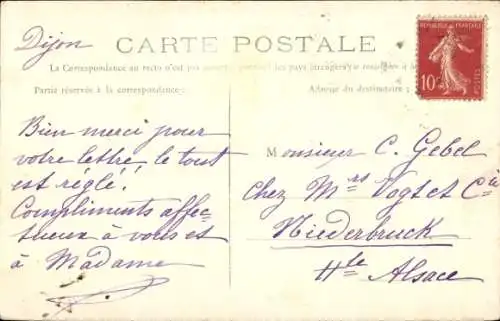 Dijon
CARTE POSTALE
RÉPUBLIQUE FRANÇAISE
10c
POSTES
La Correspondance au recto n'est pas
les pays étrangers
Partie réservée à la correspondance
Adresse du destinataire
Bien merci pour
votre lettre, le tout
est réglé!
Compliments affec-
tueux à vous et
à Madame
Monsieur C. Gebel
chez Mrs Vogt et Cie
Niederbruck
Hte Alsace